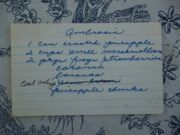 Ambrosia
1 can crushed pineapple
2 cups small marshmallows
2 pkgs frozen strawberries
coconut
bananas
Cool whip
pineapple chunks